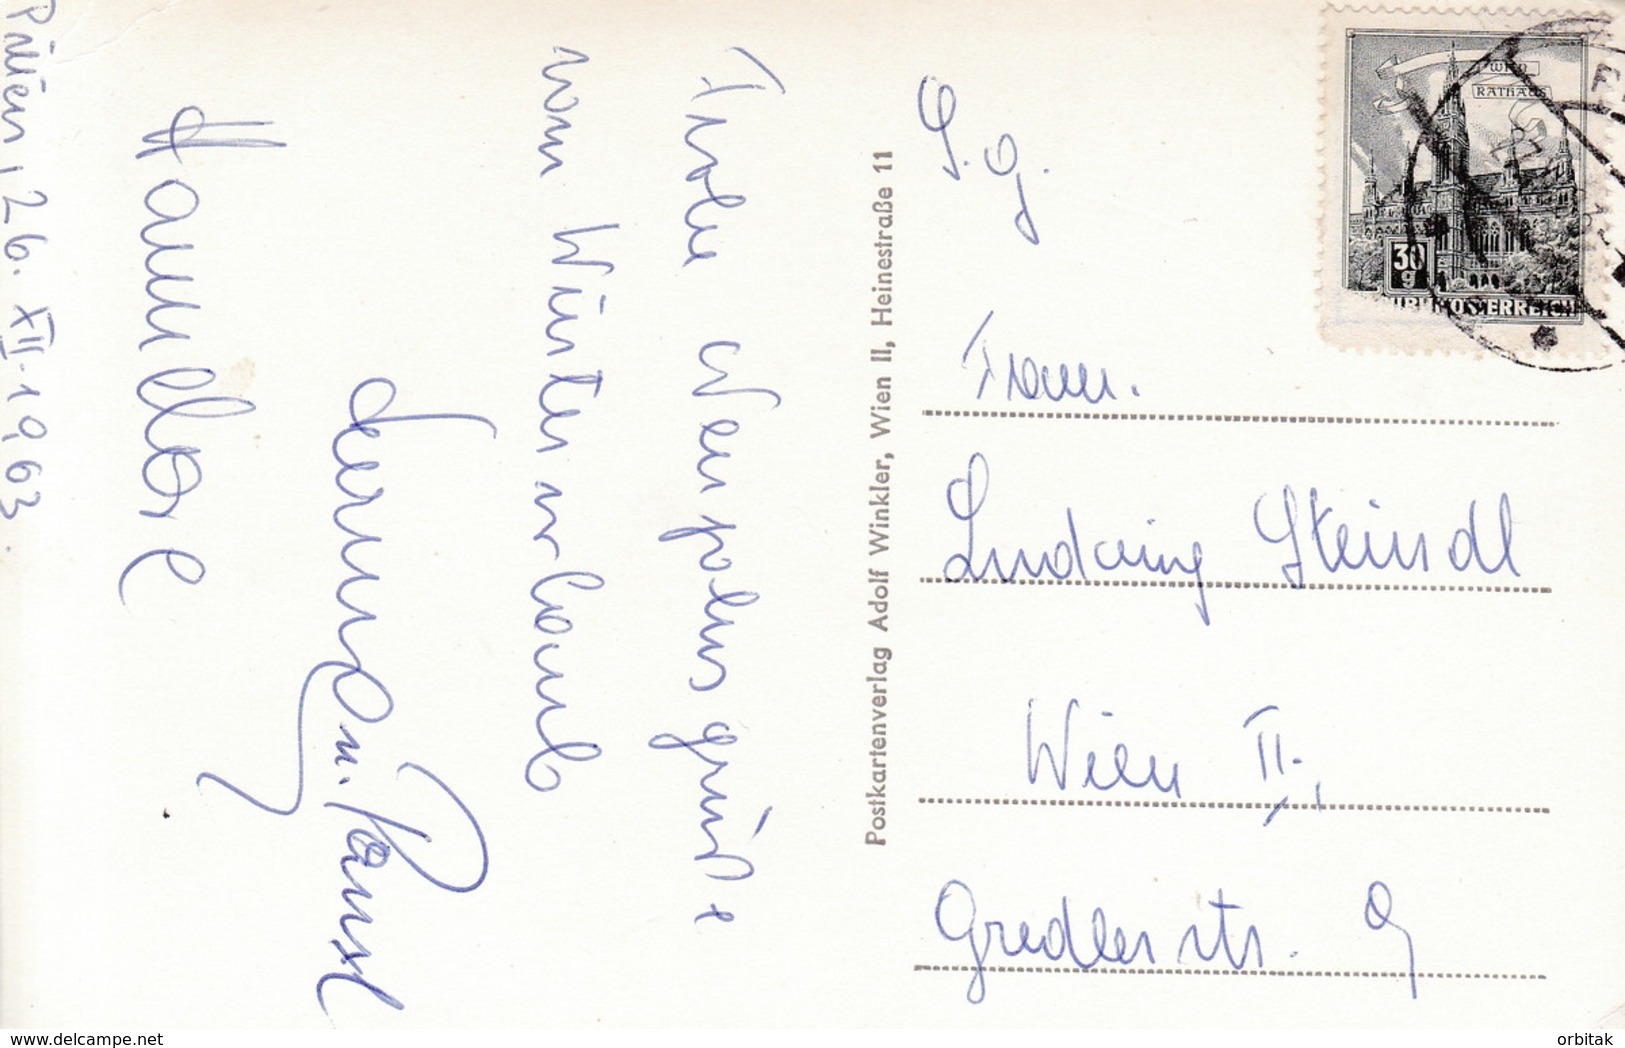 Pitten, 26. XII. 1963.
Frohe Weihnachtsgrüße
vom Winterurlaub
Hannelore
Postkartenverlag Adolf Winkler, Wien II, Heinestraße 11
WIEN
RATHAUS
30
g
REPUBLIK ÖSTERREICH
S. g.
Frau.
Ludwig Steindl
Wien II.,
Gredlerstr. 9
delcampe.net
orbitak